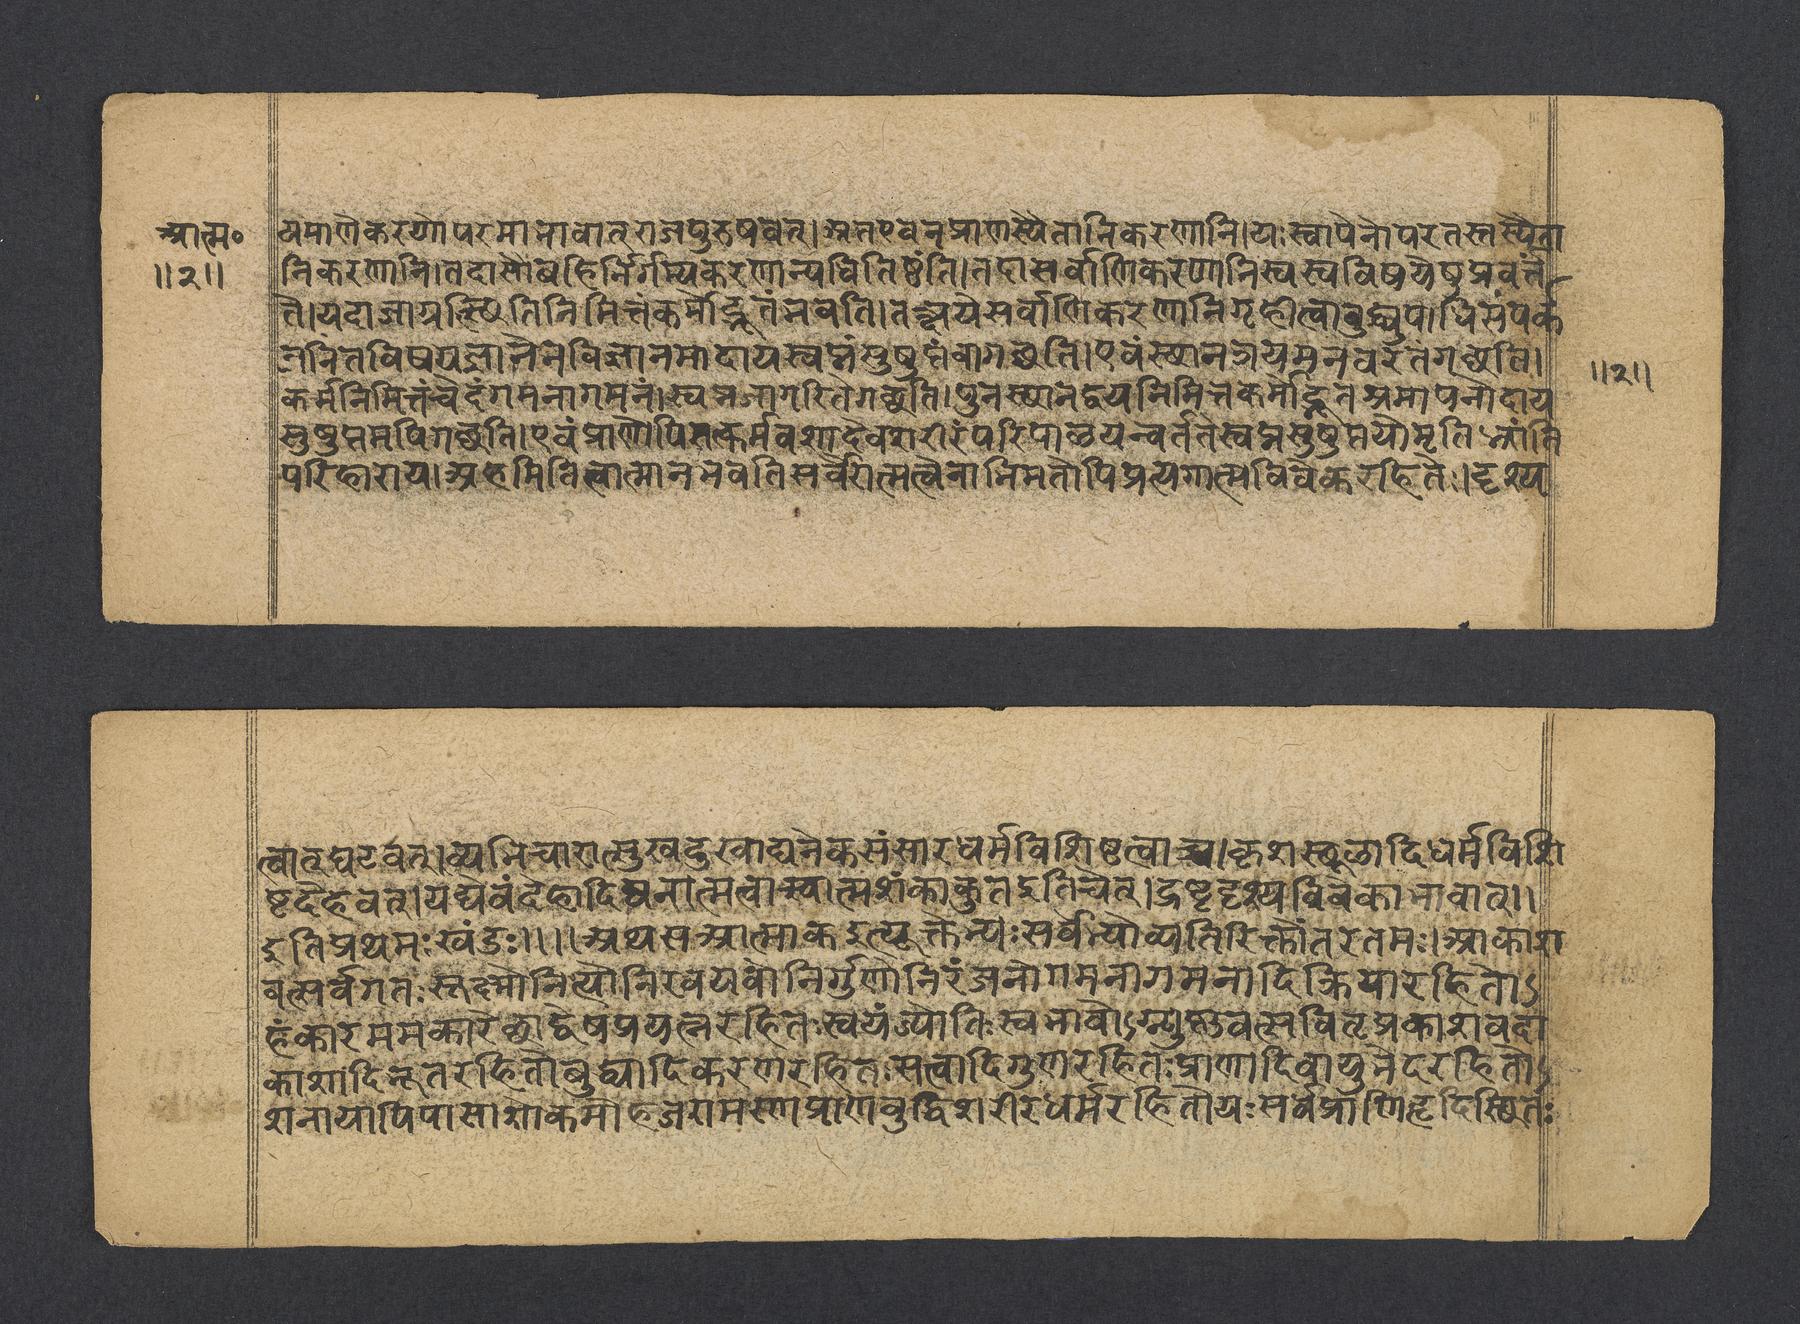 आत्म०
॥२॥
यमाणेकरणोपरमाभावात् राजपुरुषवत्।अतएवनप्राणस्यैतानिकरणानि।यःस्वापेनोपरतस्तस्यैता
निकरणानि।तदासौबहिर्निर्गम्यकरणान्यधितिष्टंति।तदासर्वाणिकरणानिस्वस्वविषयेषुप्रवर्त्तं
ते।यदाजाग्रत्स्थितिनिमित्तंकर्मोद्भूतंभवति।तत्क्षयेसर्वाणिकरणानिगृहीत्वाबुद्ध्युपाधिसंपर्क
जनितविषयज्ञानेनविज्ञानमादायस्वप्नंसुषुप्तंवागच्छति।एवंस्थानत्रयमनवरतंगच्छति।
कर्मनिमित्तंचेदंगमनागमनं।स्वप्नजागरितेगच्छति।पुनस्थानद्वयनिमित्तकर्मोद्भूतश्रमापनोदाय
सुषुप्तमपिगच्छति।एवंप्राणोपितत्कर्मवशादेवशरीरंपरिपालयन्वर्ततेस्वप्नसुषुप्तयोर्मृतिभ्रांति
परिहाराय।अहमितित्वात्मानमेवेतिसर्वैरात्मत्वेनाभिमतोपिप्रत्यगात्मविवेकरहितैः।दृश्य
॥२॥
त्वात् घटवत्।व्यभिचारात्सुखदुखाद्यनेकसंसारधर्मविशिष्टत्वाच्च।कृशस्थूलादिधर्मविशि
ष्टदेहवत्।यद्येवंदेहादिष्वनात्मत्वात्स्वात्मशंकाकुतइतिचेत्।द्रष्टृदृश्यविवेकाभावात्॥
इतिप्रथमःखंडः॥॥अथसआत्माकइत्युक्तेन्यःसर्वेभ्योव्यतिरिक्तोंतरतमः।आकाश
वत्सर्वगतःसूक्ष्मोनित्योनिरवयवोनिर्गुणोनिरंजनोगमनागमनादिक्रियारहितोऽ
हंकारममकारेछाद्वेषप्रयत्नरहितःस्वयंज्योतिःस्वभावोऽग्न्युष्णवत्सवितृप्रकाशवदा
काशादिभूतरहितोबुद्ध्यादिकरणरहितःसत्वादिगुणरहितःप्राणादिवायुभेदरहितोऽ
शनायापिपासाशोकमोहजरामरणप्राणबुद्धिशरीरधर्मरहितोयःसर्वप्राणिहृदिस्थितः